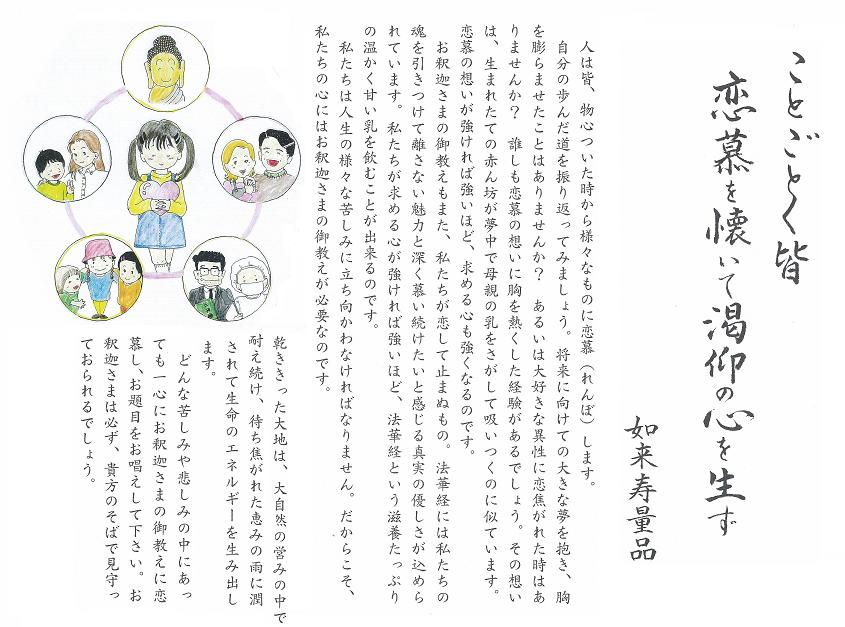 ことごとく皆
恋慕を懐いて渇仰の心を生ず
如来寿量品
人は皆、物心ついた時から様々なものに恋慕（れんぼ）します。
自分の歩んだ道を振り返ってみましょう。将来に向けての大きな夢を抱き、胸
を膨らませたことはありませんか？　あるいは大好きな異性に恋焦がれた時はあ
りませんか？　誰しも恋慕の想いに胸を熱くした経験があるでしょう。その想い
は、生まれたての赤ん坊が夢中で母親の乳をさがして吸いつくのに似ています。
恋慕の想いが強ければ強いほど、求める心も強くなるのです。
お釈迦さまの御教えもまた、私たちが恋して止まぬもの。法華経には私たちの
魂を引きつけて離さない魅力と深く慕い続けたいと感じる真実の優しさが込めら
れています。私たちが求める心が強ければ強いほど、法華経という滋養たっぷり
の温かく甘い乳を飲むことが出来るのです。
私たちは人生の様々な苦しみに立ち向かわなければなりません。だからこそ、
私たちの心にはお釈迦さまの御教えが必要なのです。
乾ききった大地は、大自然の営みの中で
耐え続け、待ち焦がれた恵みの雨に潤
されて生命のエネルギーを生み出し
ます。
どんな苦しみや悲しみの中にあっ
ても一心にお釈迦さまの御教えに恋
慕し、お題目をお唱えして下さい。お
釈迦さまは必ず、貴方のそばで見守っ
ておられるでしょう。